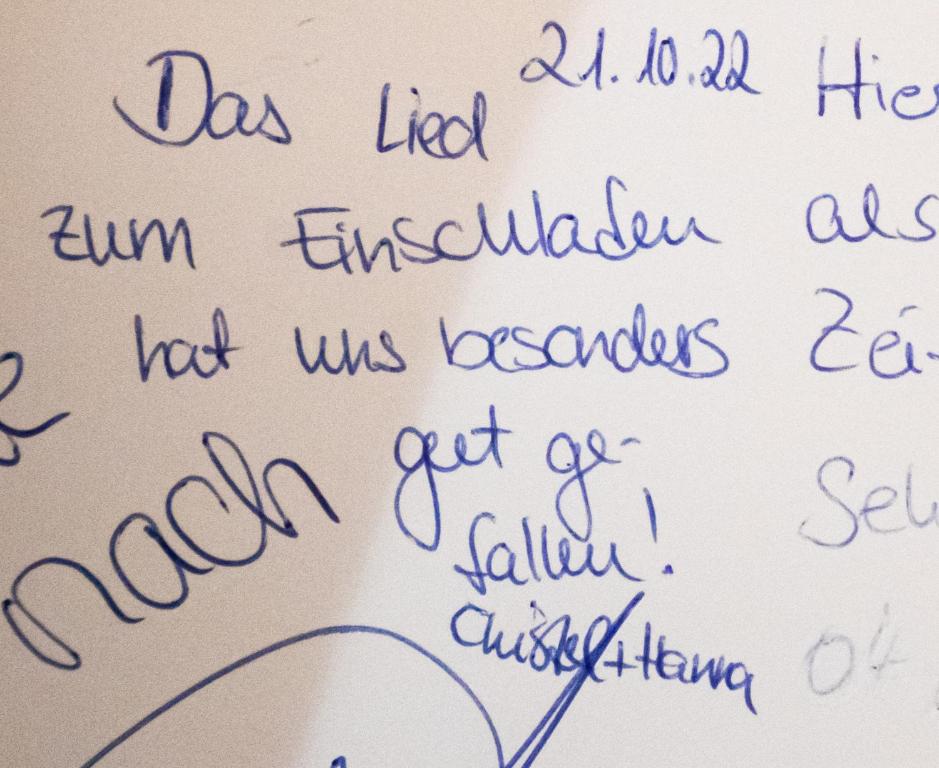 21.10.22
Das Lied
zum Einschlafen
hat uns besonders
gut ge-
fallen!
Christel + Hanna
nach
Hie
als
Zei-
Seh